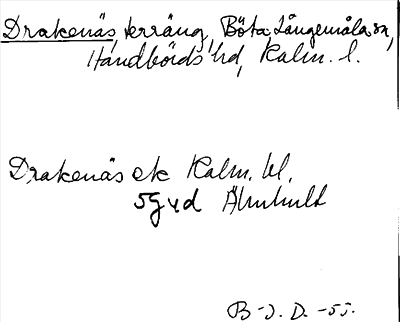 Drakenäs, terräng, Böta, Långemåla sn,
Handbörds hd, Kalm. l.
Drakenäs ek Kalm. bl.
5g vd Älmhult
B-J. D. -55.